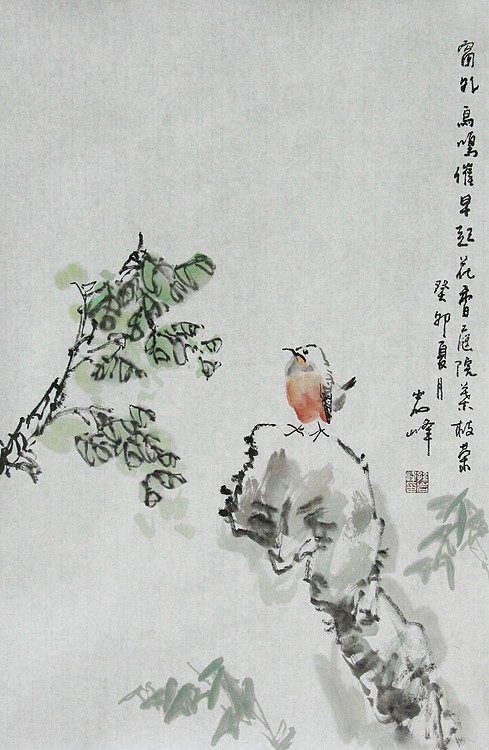 窗外鳥鳴催早起花香庭院葉荣
癸卯夏月
岩峰